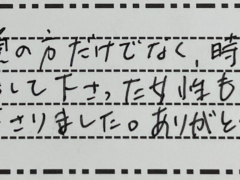 の方だけでなく、時
して下さった女性も
さりました。ありがと